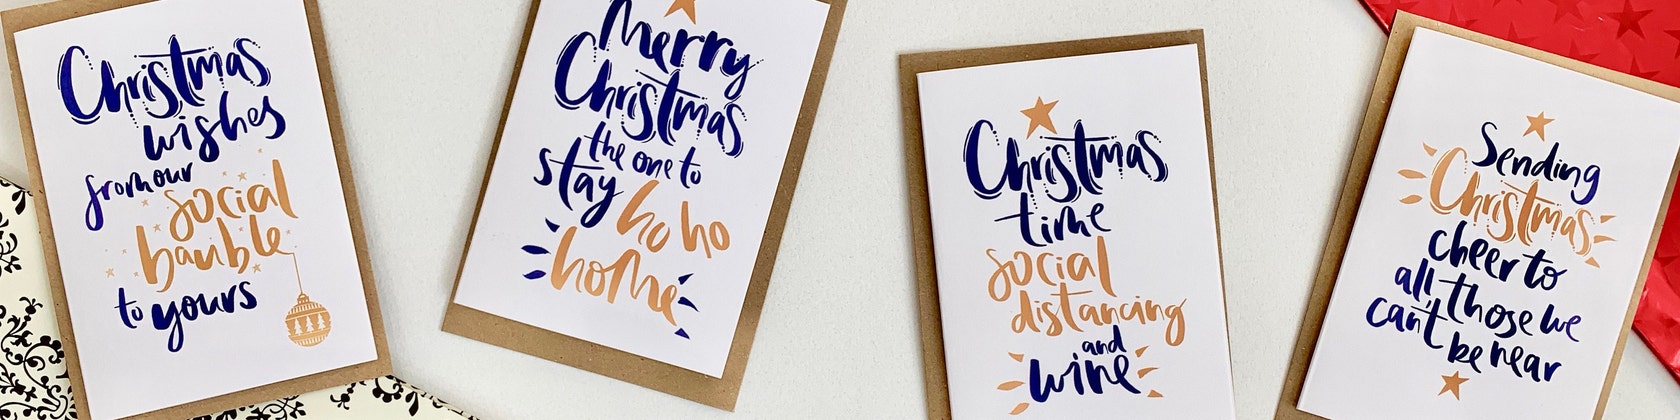 Christmas
wishes
from our
social
bauble
to yours
Merry
Christmas
the one to
stay ho ho
home
Christmas
time
social
distancing
and
wine
Sending
Christmas
cheer to
all those we
can't be near